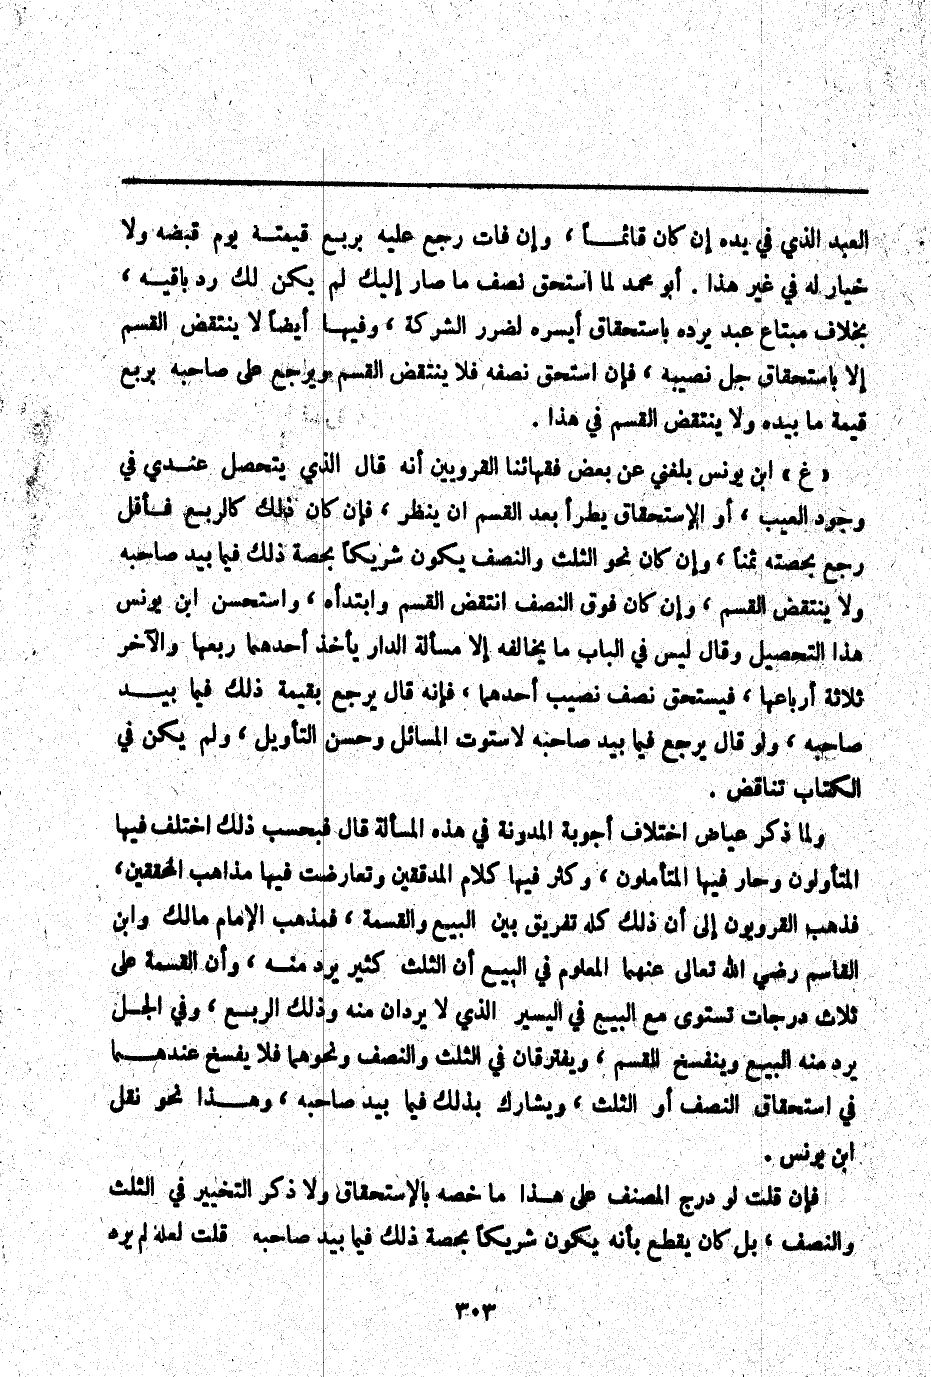 العبد الذي في يده إن كان قائمـــاً ، وإن فات رجع عليه بربـع قيمتـة يوم قبضه ولا
خيار له في غير هذا . أبو محمد لما استحق نصف ما صار إليك لم يكن لك رد باقيـه ،
بخلاف مبتاع عبد يرده باستحقاق أيسره لضرر الشركة ، وفيهـا أيضاً لا ينتقض القسم
إلا باستحقاق جل نصيبة ، فإن استحق نصفه فلا ينتقض القسم ويرجع على صاحبه بربع
قيمة ما بيده ولا ينتقض القسم في هذا .
« غ » ابن يونس بلغني عن بعض فقهائنا القرويين أنه قال الذي يتحصل عنـدي في
وجود العيب ، أو الإستحقاق يطرأ بعد القسم ان ينظر ، فإن كان ذلك كالربـع فـأقل
رجع بحصته ثمناً ، وإن كان نحو الثلث والنصف يكون شريكاً بحصة ذلك فيما بيد صاحبه
ولا ينتقض القسم ، وإن كان فوق النصف انتقض القسم وابتدأه ، واستحسن ابن يونس
هذا التحصيل وقال ليس في الباب ما يخالفه إلا مسألة الدار يأخذ أحدهما ربعها والآخر
ثلاثة أرباعها ، فيستحق نصف نصيب أحدهما ، فإنه قال يرجع بقيمة ذلك فيما بيـــد
صاحبه ، ولو قال يرجع فيما بيد صاحبه لاستوت المسائل وحسن التأويل ، ولم يكن في
الكتاب تناقض .
ولما ذكر عياض اختلاف أجوبة المدونة في هذه المسألة قال فبحسب ذلك اختلف فيها
المتأولون وحار فيها المتأملون ، وكثر فيها كلام المدققين وتعارضت فيها مذاهب المحققين،
فذهب القرويون إلى أن ذلك كله تفريق بين البيع والقسمة ، فمذهب الإمام مالك وابن
القاسم رضي الله تعالى عنهما المعلوم في البيـع أن الثلث كثير يرد منـه ، وأن القسمة على
ثلاث درجات تستوى مع البيع في اليسير الذي لا يردان منه وذلك الربـع ، وفي الجـل
يرد منه البيـع وينفسخ القسم ، ويفترقان في الثلث والنصف ونحوهما فلا يفسخ عندهـــما
في استحقاق النصف أو الثلث ، ويشارك بذلك فيما بيد صاحبه ، وهـــذا نحو نقل
ابن يونس .
فإن قلت لو درج المصنف على هـذا ما خصه بالإستحقاق ولا ذكر التخيير في الثلث
والنصف ، بل كان يقطع بأنه يكون شريكاً بحصة ذلك فيما بيد صاحبه قلت لعله لم يره
٣٠٣